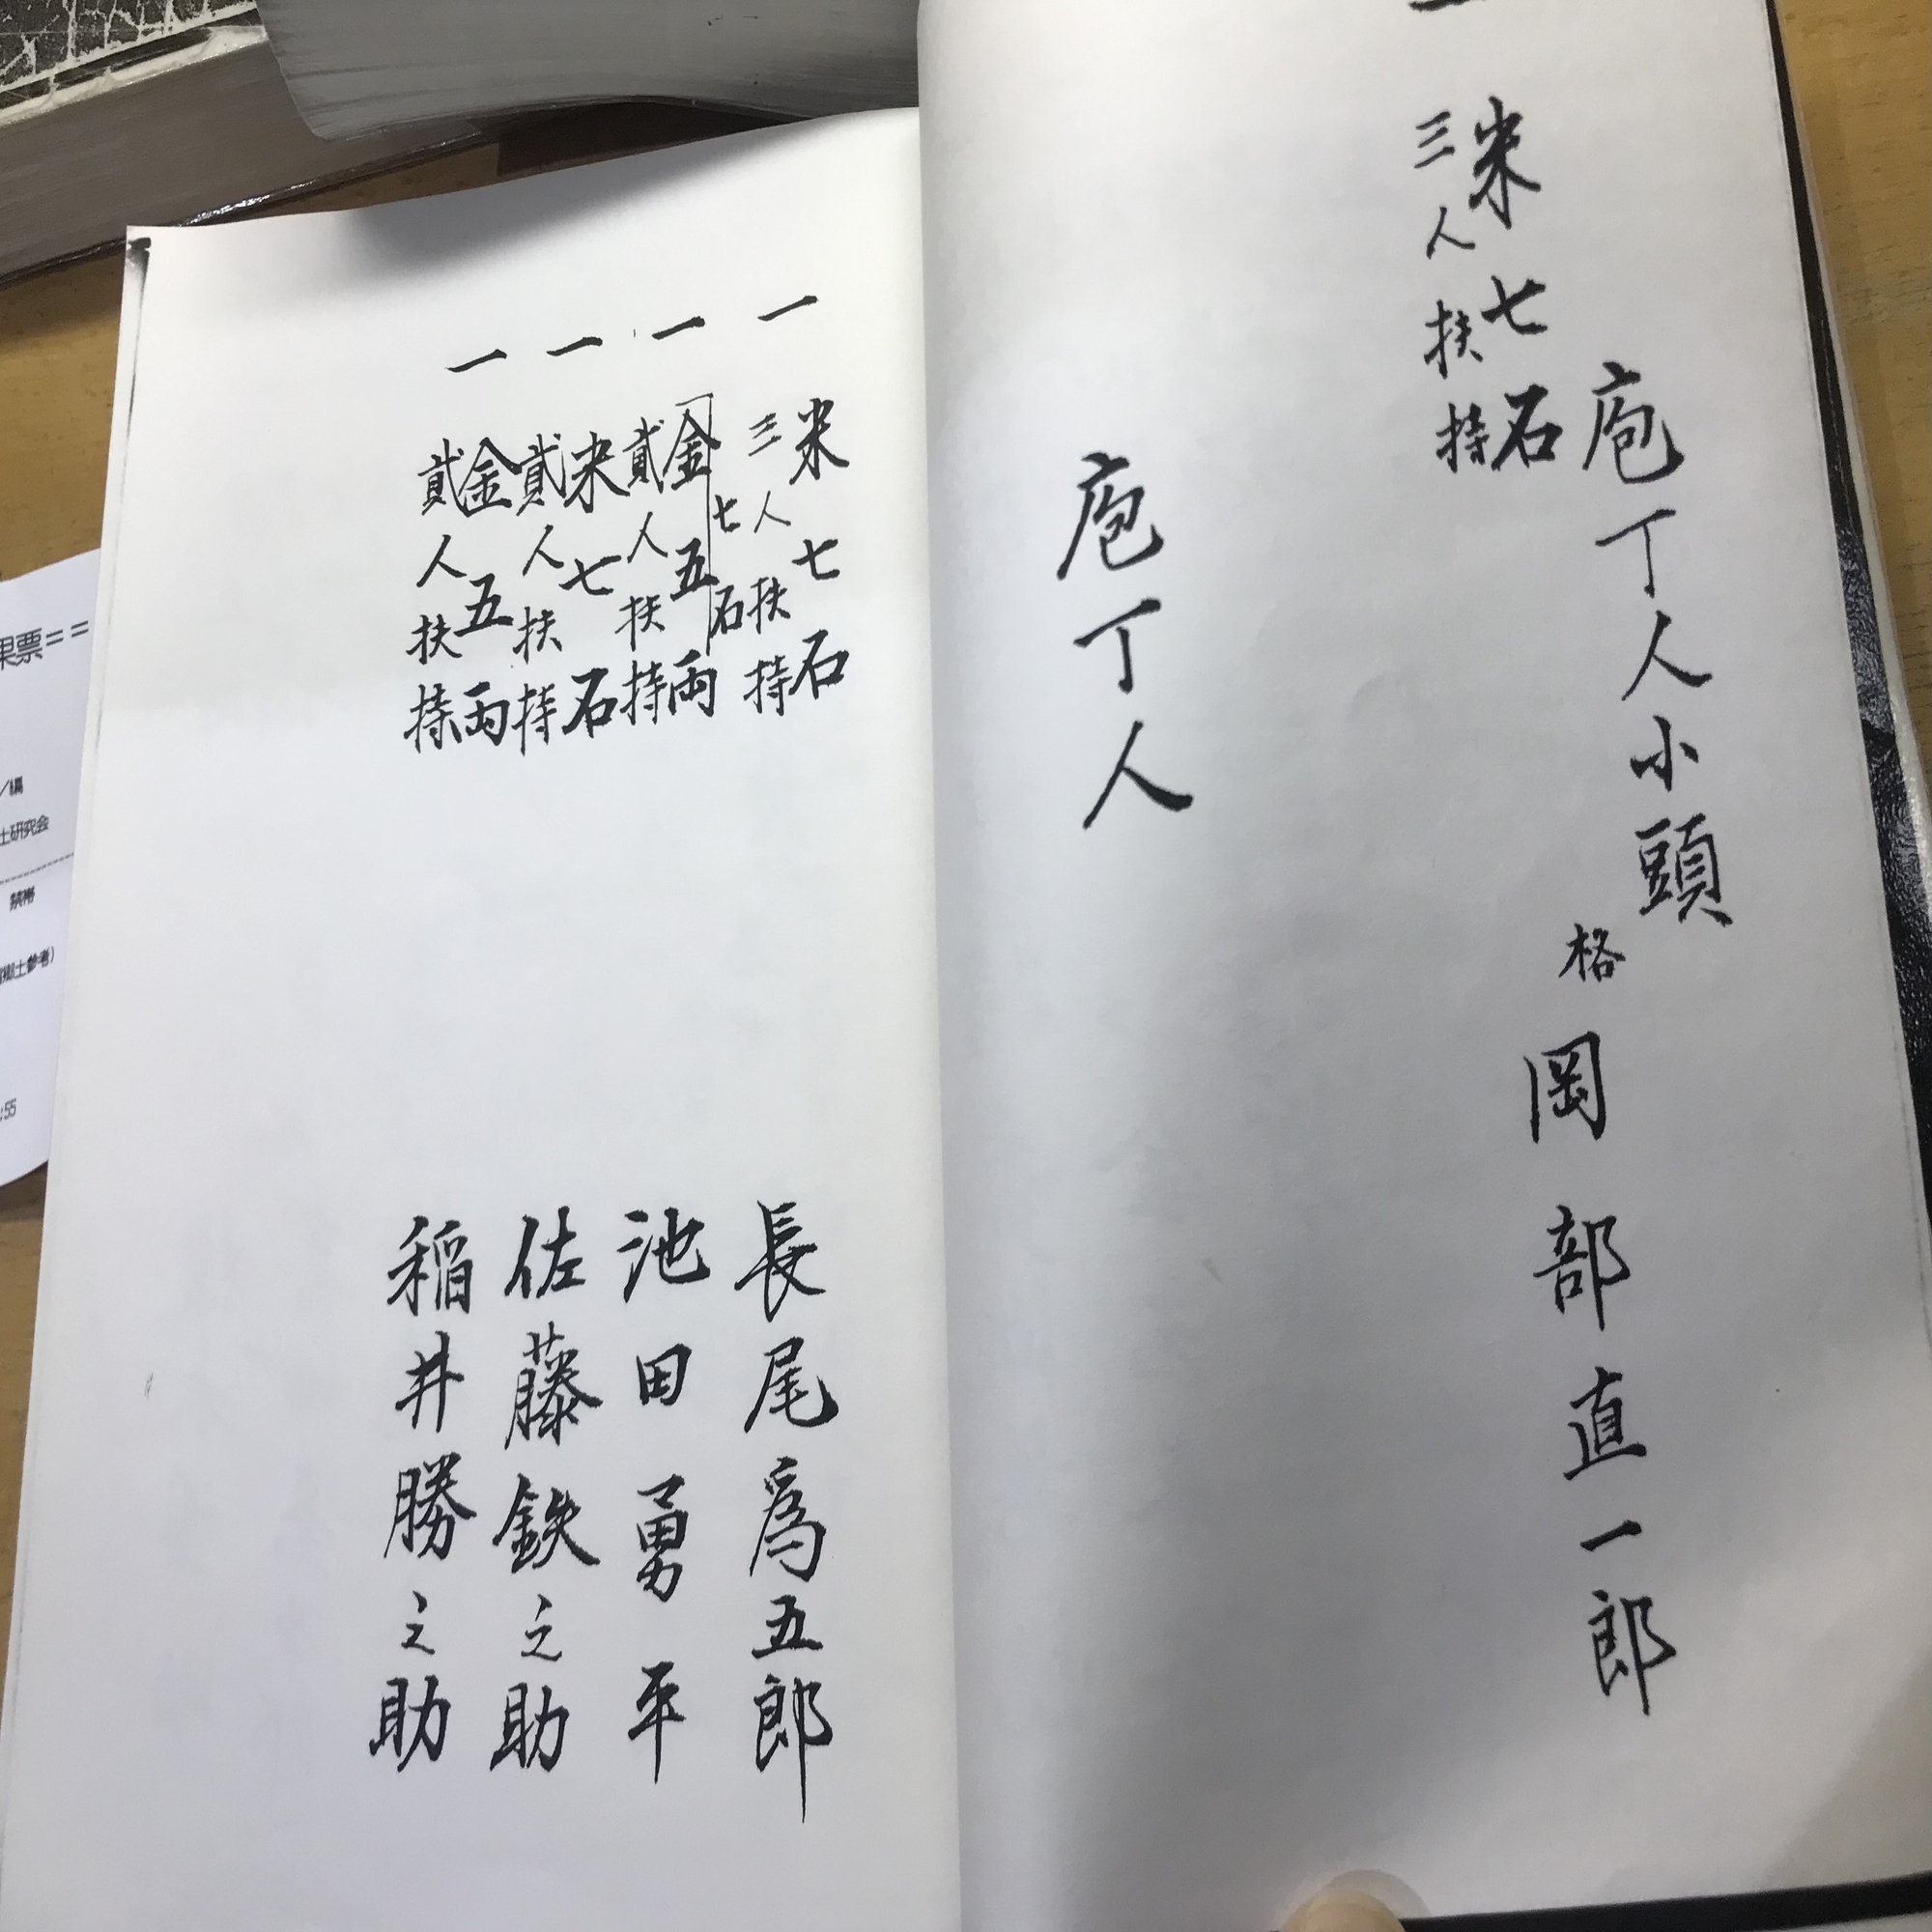 庖丁人小頭
一
米七石
三人扶持
格
岡部直一郎
庖丁人
一
米七石
三人扶持
長尾爲五郎
一
七石
金五両
貮人扶持
池田勇平
一
米七石
貮人扶持
佐藤鉄之助
一
金五両
貮人扶持
稲井勝之助
果票==
／編
土研究会
禁帯
郷土参考)
:55